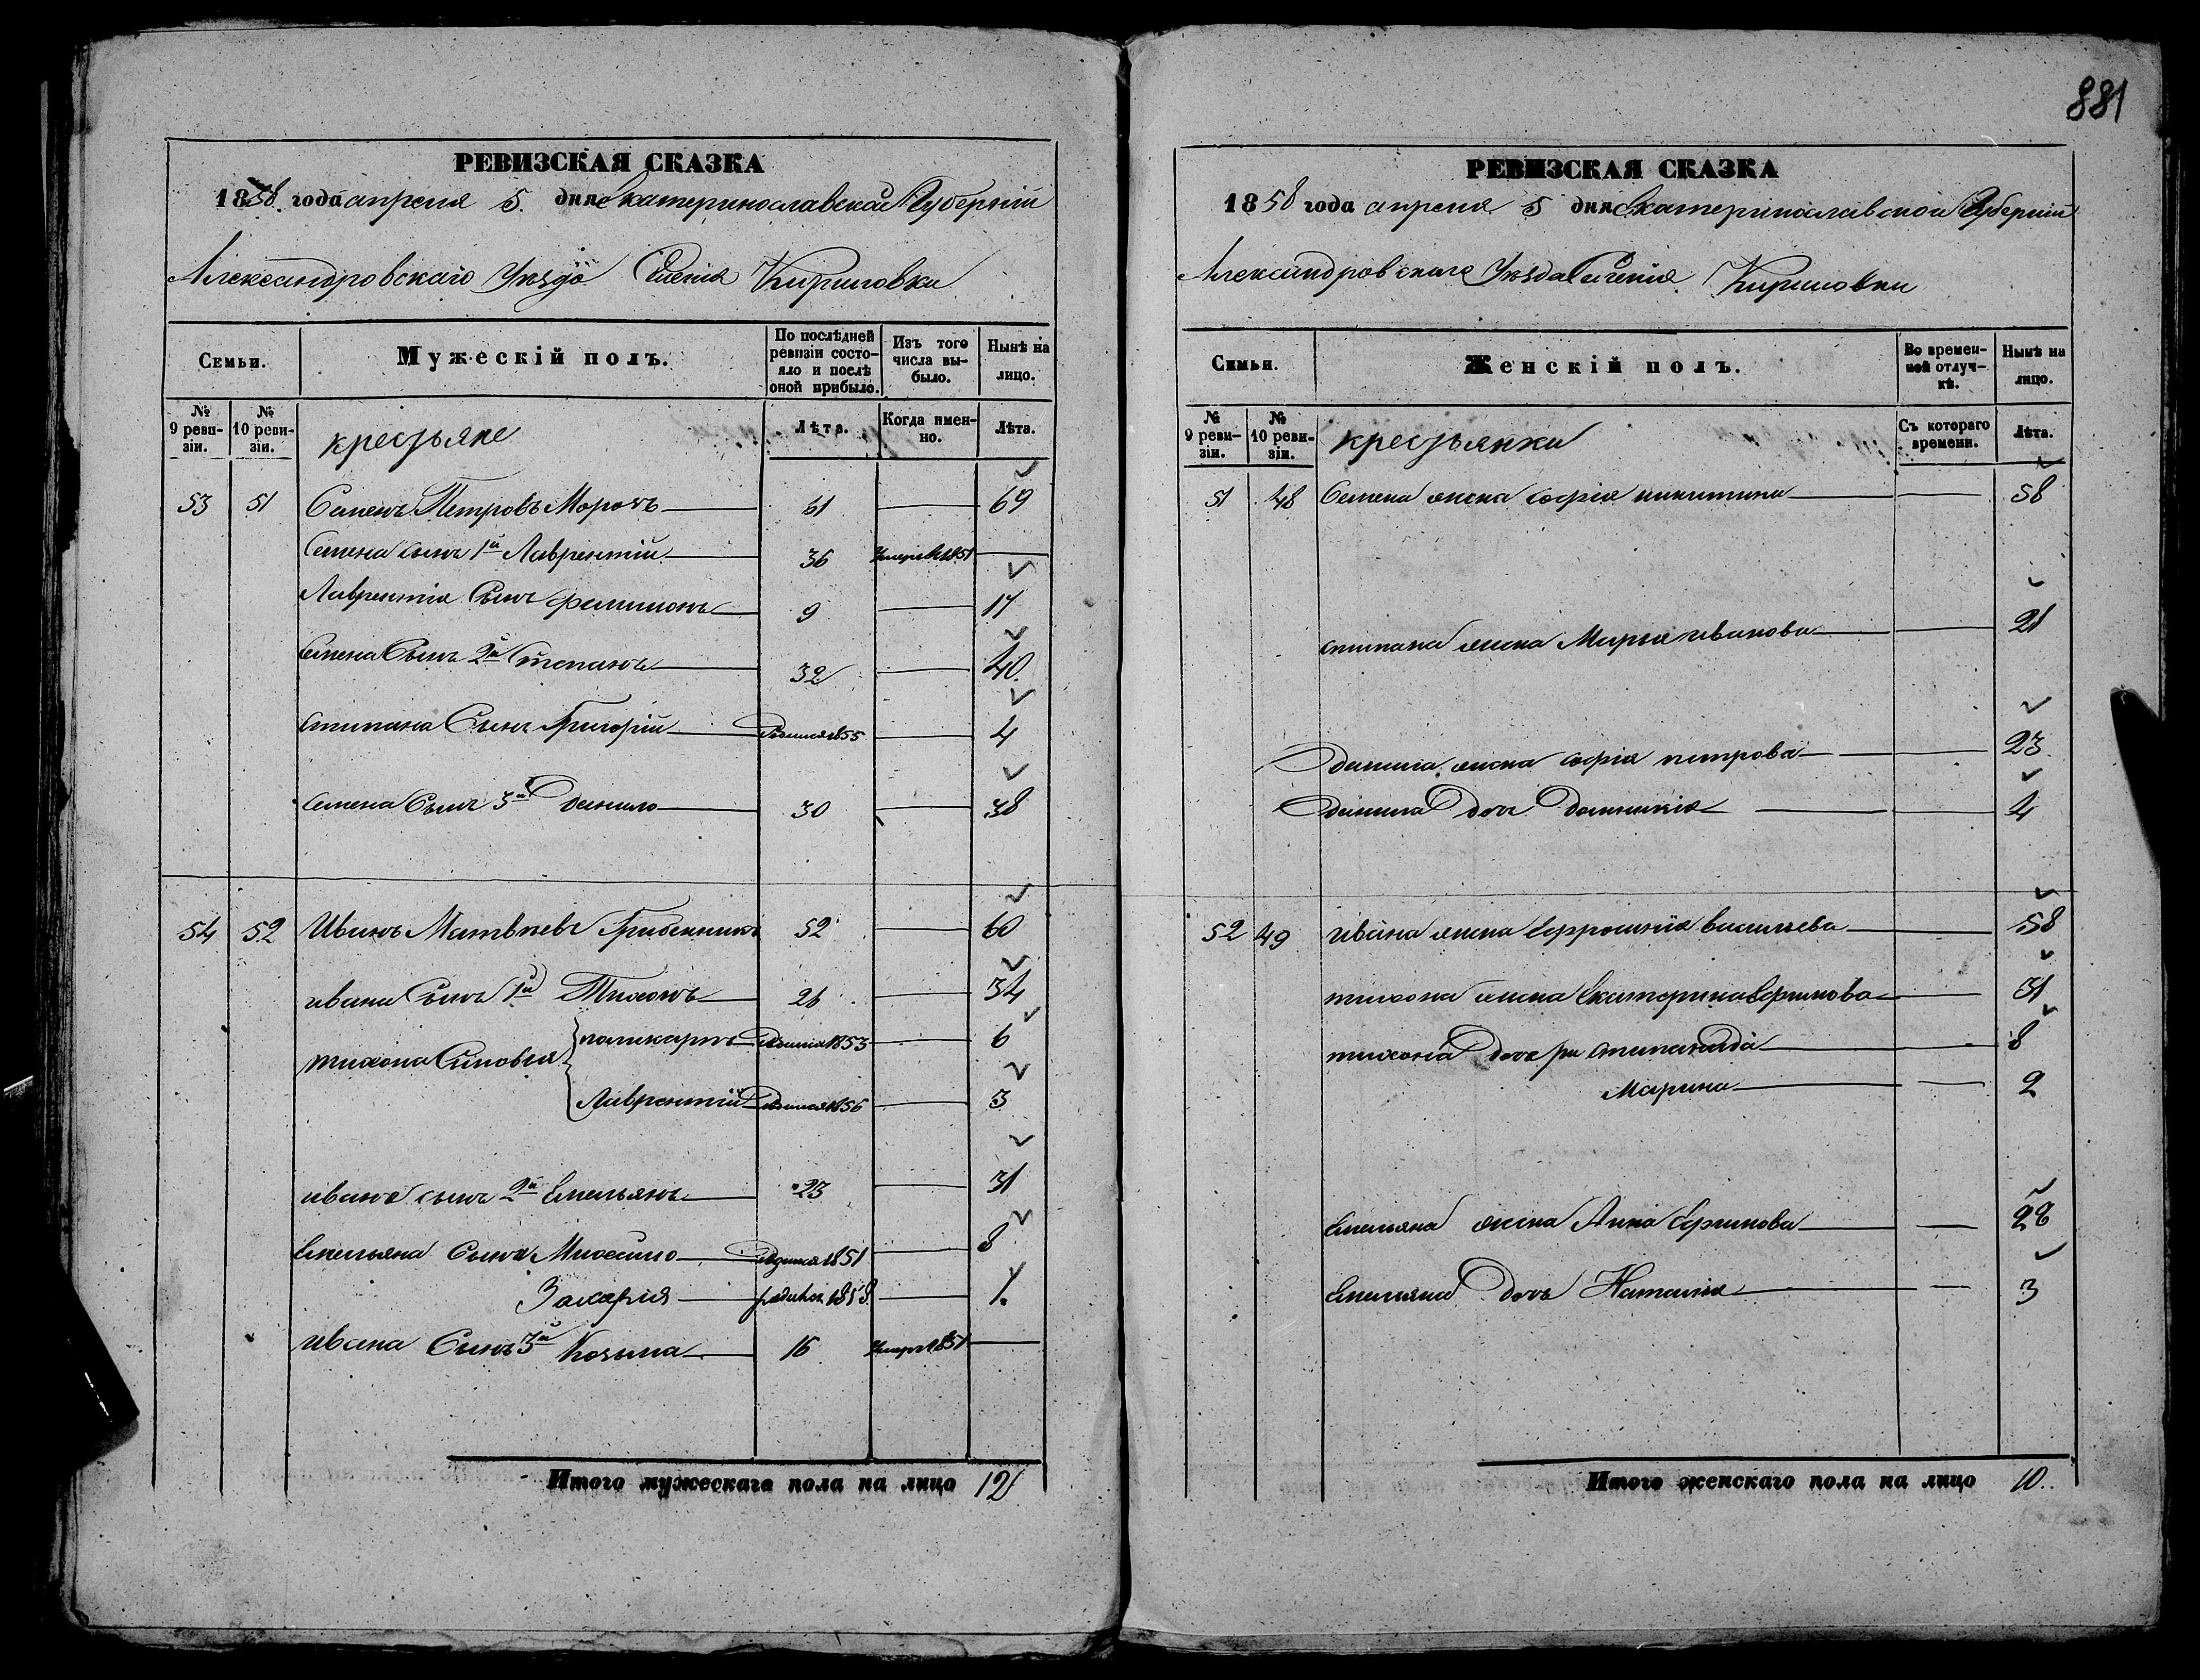 881
РЕВИЗСКАЯ СКАЗКА
1858 года апреля 5 дня Екатеринославской Губерніи
Александровскаго Уезда Селенія Кириловки
Семьи.
Мужескій полъ.
По послѣдней ревизіи состо-яло и послѣ оной прибыло.
Изъ того числа вы-было.
Нынѣ на лицо.
№ 9 реви-зіи.
№ 10 реви-зіи.
крестьяне
Лѣта.
Когда имен-но.
Лѣта.
53 51 Семенъ Петровъ Морозъ 61 69
Семена Сынъ 1й Лаврентій 36 Умеръ въ 1851
Лаврентія Сынъ филимонъ 9 17
Семена Сынъ 2й Степанъ 32 40
степана Сынъ Григорій Родился 1855 4
семена Сынъ 3й Данило 30 38
54 52 Иванъ Матвѣевъ Грибенникъ 52 60
ивана Сынъ 1й Тихонъ 26 34
тихона Сыновья поликарпъ Родился 1853 6
Лаврентій Родился 1856 3
ивана сынъ 2й Емельянъ 23 31
Емельяна Сынъ Михаило Родился 1851 8
Захарія родился 1858 1.
ивана Сынъ 3й Козьма 16 Умеръ 1851
Итого мужескаго пола на лицо 12
РЕВИЗСКАЯ СКАЗКА
1858 года апреля 5 дня Екатеринославской Губерніи
Александровскаго Уезда Селенія Кириловки
Семьи.
Женскій полъ.
Во времен-ной отлуч-кѣ.
Нынѣ на лицо.
№ 9 реви-зіи.
№ 10 реви-зіи.
крестьянки
Съ котораго времени.
Лѣта.
51 48 Семена жена софія никитина 58
степана жена Марья иванова 21
данила жена софія петрова 23
данила дочь Домникія 4
52 49 ивана жена Ефросинія васильева 58
тихона жена Екатерина Ефимова 31
тихона дочери степанида 8
Марина 2
Емельяна жена Анна Ефимова 28
Емельяна дочь Наталія 3
Итого женскаго пола на лицо 10.